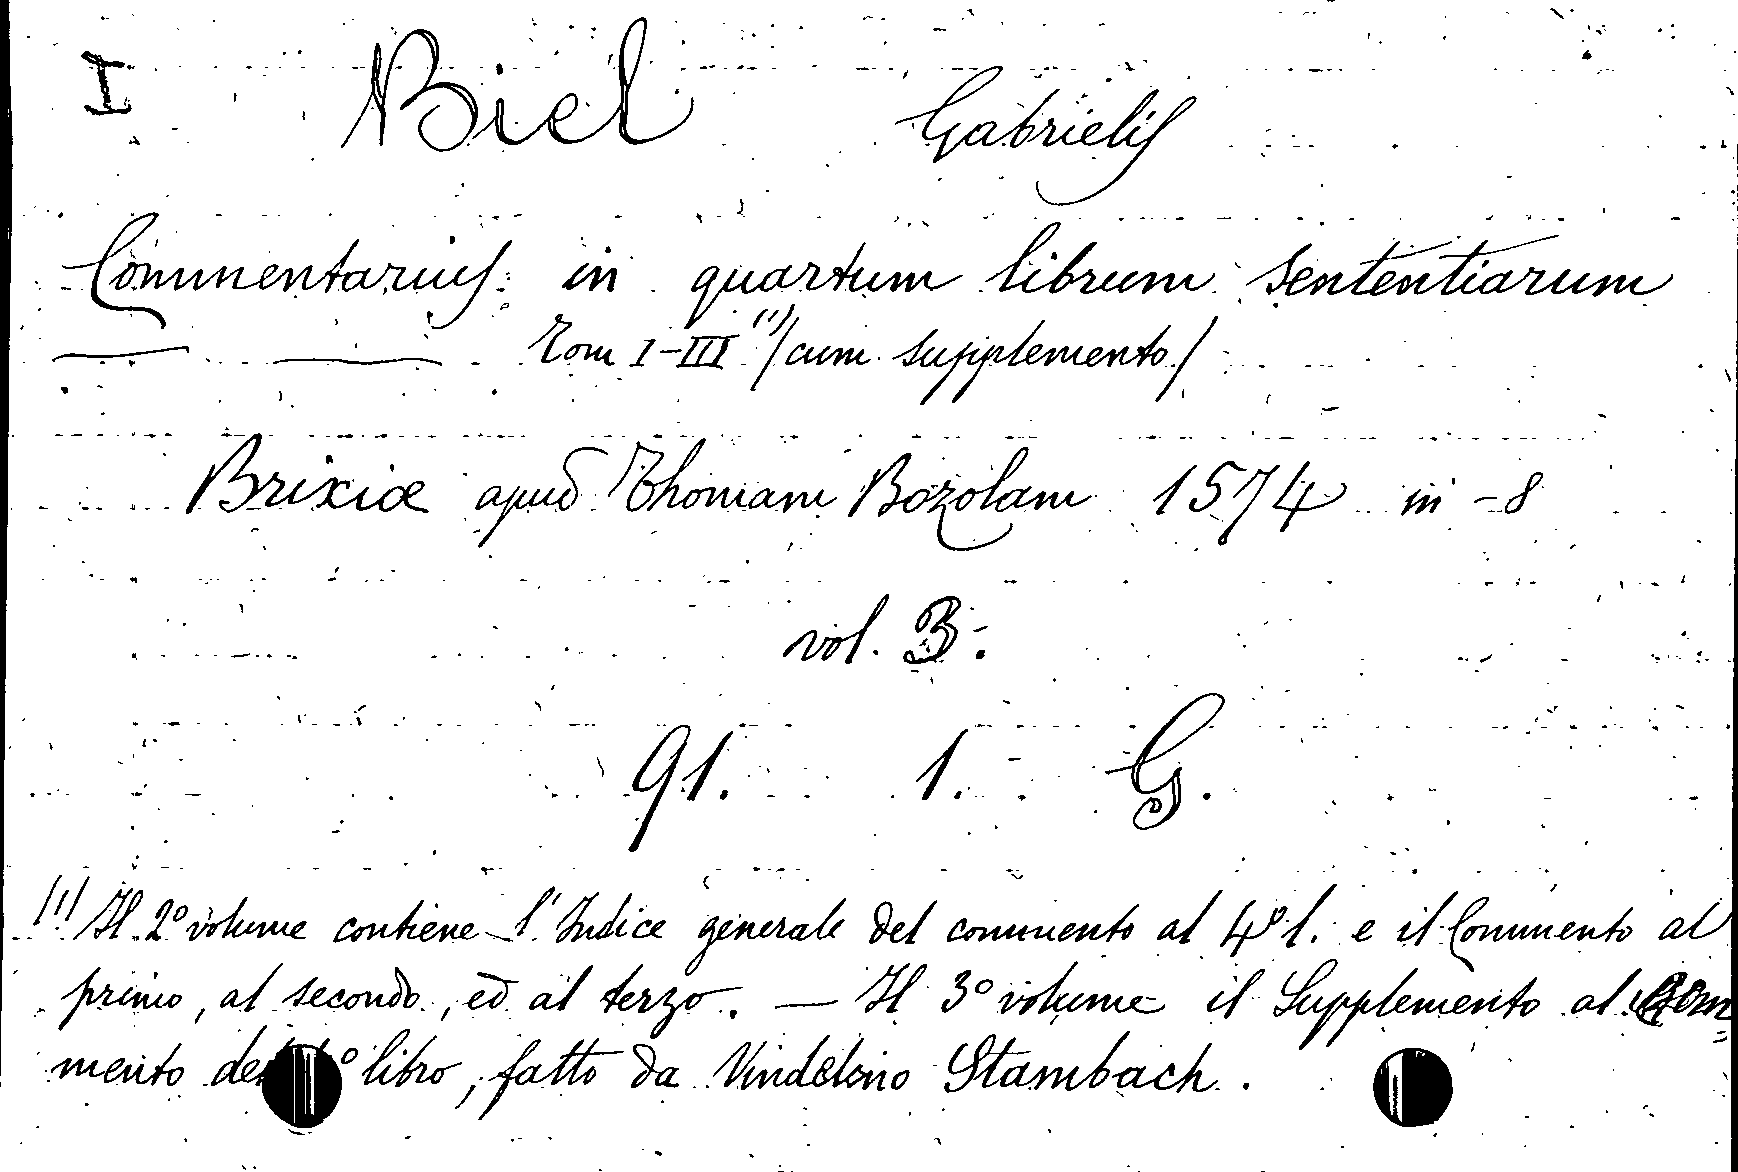 I Biel Gabrielis
Commentarius in quartum librum sententiarum
Tom I-III (1) /cum supplemento/
Brixiæ apud Thomam Bozolam 1574 in-8
vol. 3.
91. 1. G.
/1/ Il 2° volume contiene l'Indice generale del commento al 4° l. e il Commento al
primo, al secondo, ed al terzo. — Il 3° volume il Supplemento al Com=
mento del libro, fatto da Vindelino Stambach.